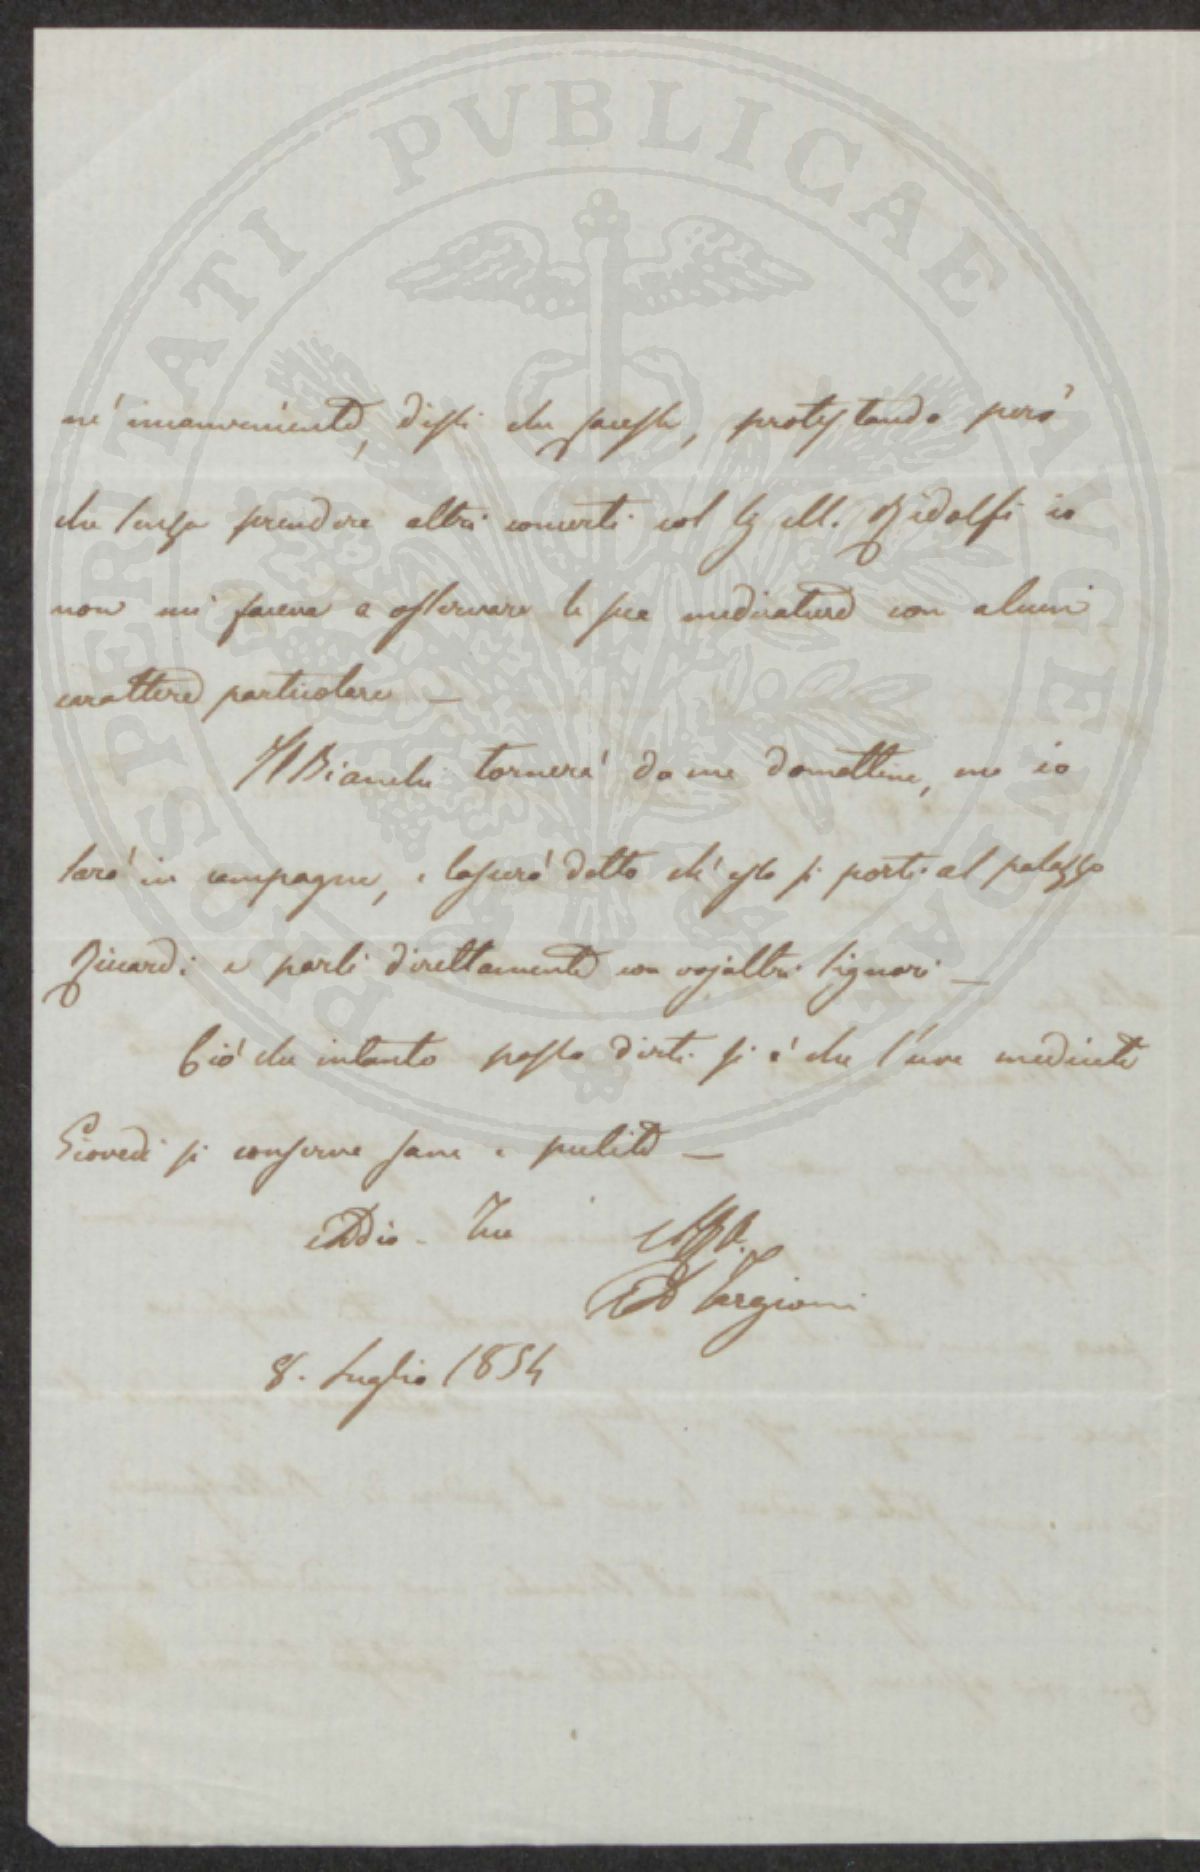 PROSPERITATI PVBLICAE AVGENDAE
né inconveniente, dissi che facesse, protestando però
che senza prendere altri concerti col Sig. M. Ridolfi io
non mi faceva a osservare la sua medicatura con alcun
carattere particolare —
Il Bianchi tornerà da me domattina, ma io
sarò in campagna, e lascerò detto ch' esso si porti al palazzo
Riccardi e parli direttamente con vojaltri Signori —
Ciò che intanto posso dirti si è che l'uva medicata
Giovedì si conserva sana e pulita —
Addio - Tuo Affo.
Ad Targioni
8. Luglio 1854